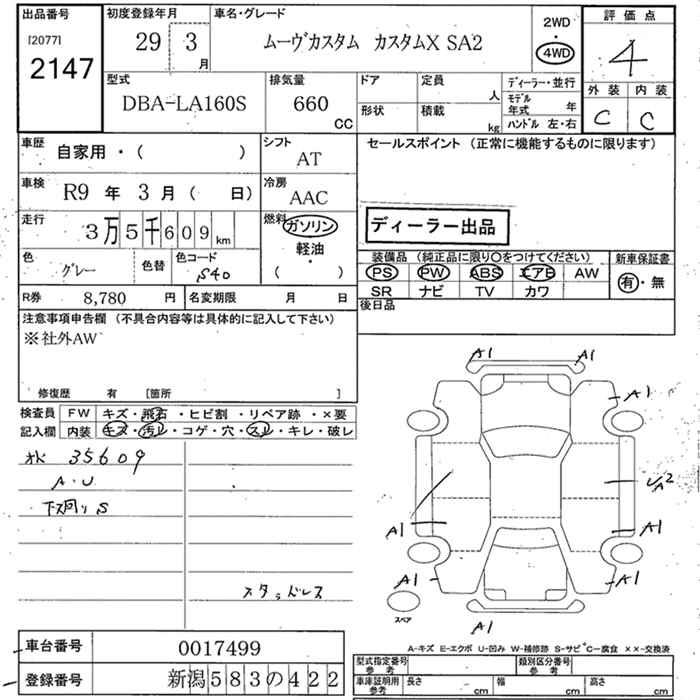 出品番号
[2077]
2147
初度登録年月
29 3
月
車名・グレード
ムーヴカスタム カスタムX SA2
2WD
・
4WD
評価点
4
外装 内装
C C
型式
DBA-LA160S
排気量
660
CC
ドア 定員
人
形状 積載
kg
ディーラー・並行
モデル
年式 年
ハンドル 左・右
車歴
自家用・( )
シフト
AT
セールスポイント (正常に機能するものに限ります)
車検
R9 年 3 月 ( 日)
冷房
AAC
走行
3万5千609km
燃料
ガソリン
軽油
( ・ )
ディーラー出品
色
グレー
色替
色コード
S40
装備品 (純正品に限り○をつけてください)
PS PW ABS エアB AW
SR ナビ TV カワ
新車保証書
有・無
R券 8,780 円
名変期限 月 日
後日品
注意事項申告欄 (不具合内容等は具体的に記入して下さい)
※社外AW
修復歴 有 [箇所 ]
検査員 FW キズ・飛石・ヒビ割・リペア跡・×要
記入欄 内装 キズ・汚レ・コゲ・穴・スレ・キレ・破レ
35609
A・U
下廻り S
スタッドレス
A1 A1
A1
A2
A1 A1
A1 A1
A1
スペア
車台番号 0017499
登録番号 新潟583の422
A-キズ E-エクボ U-凹み W-補修跡 S-サビ C-腐食 ××-交換済
型式指定番号
参考
類別区分番号
参考
車庫証明用
参考
長さ cm
幅 cm
高さ cm